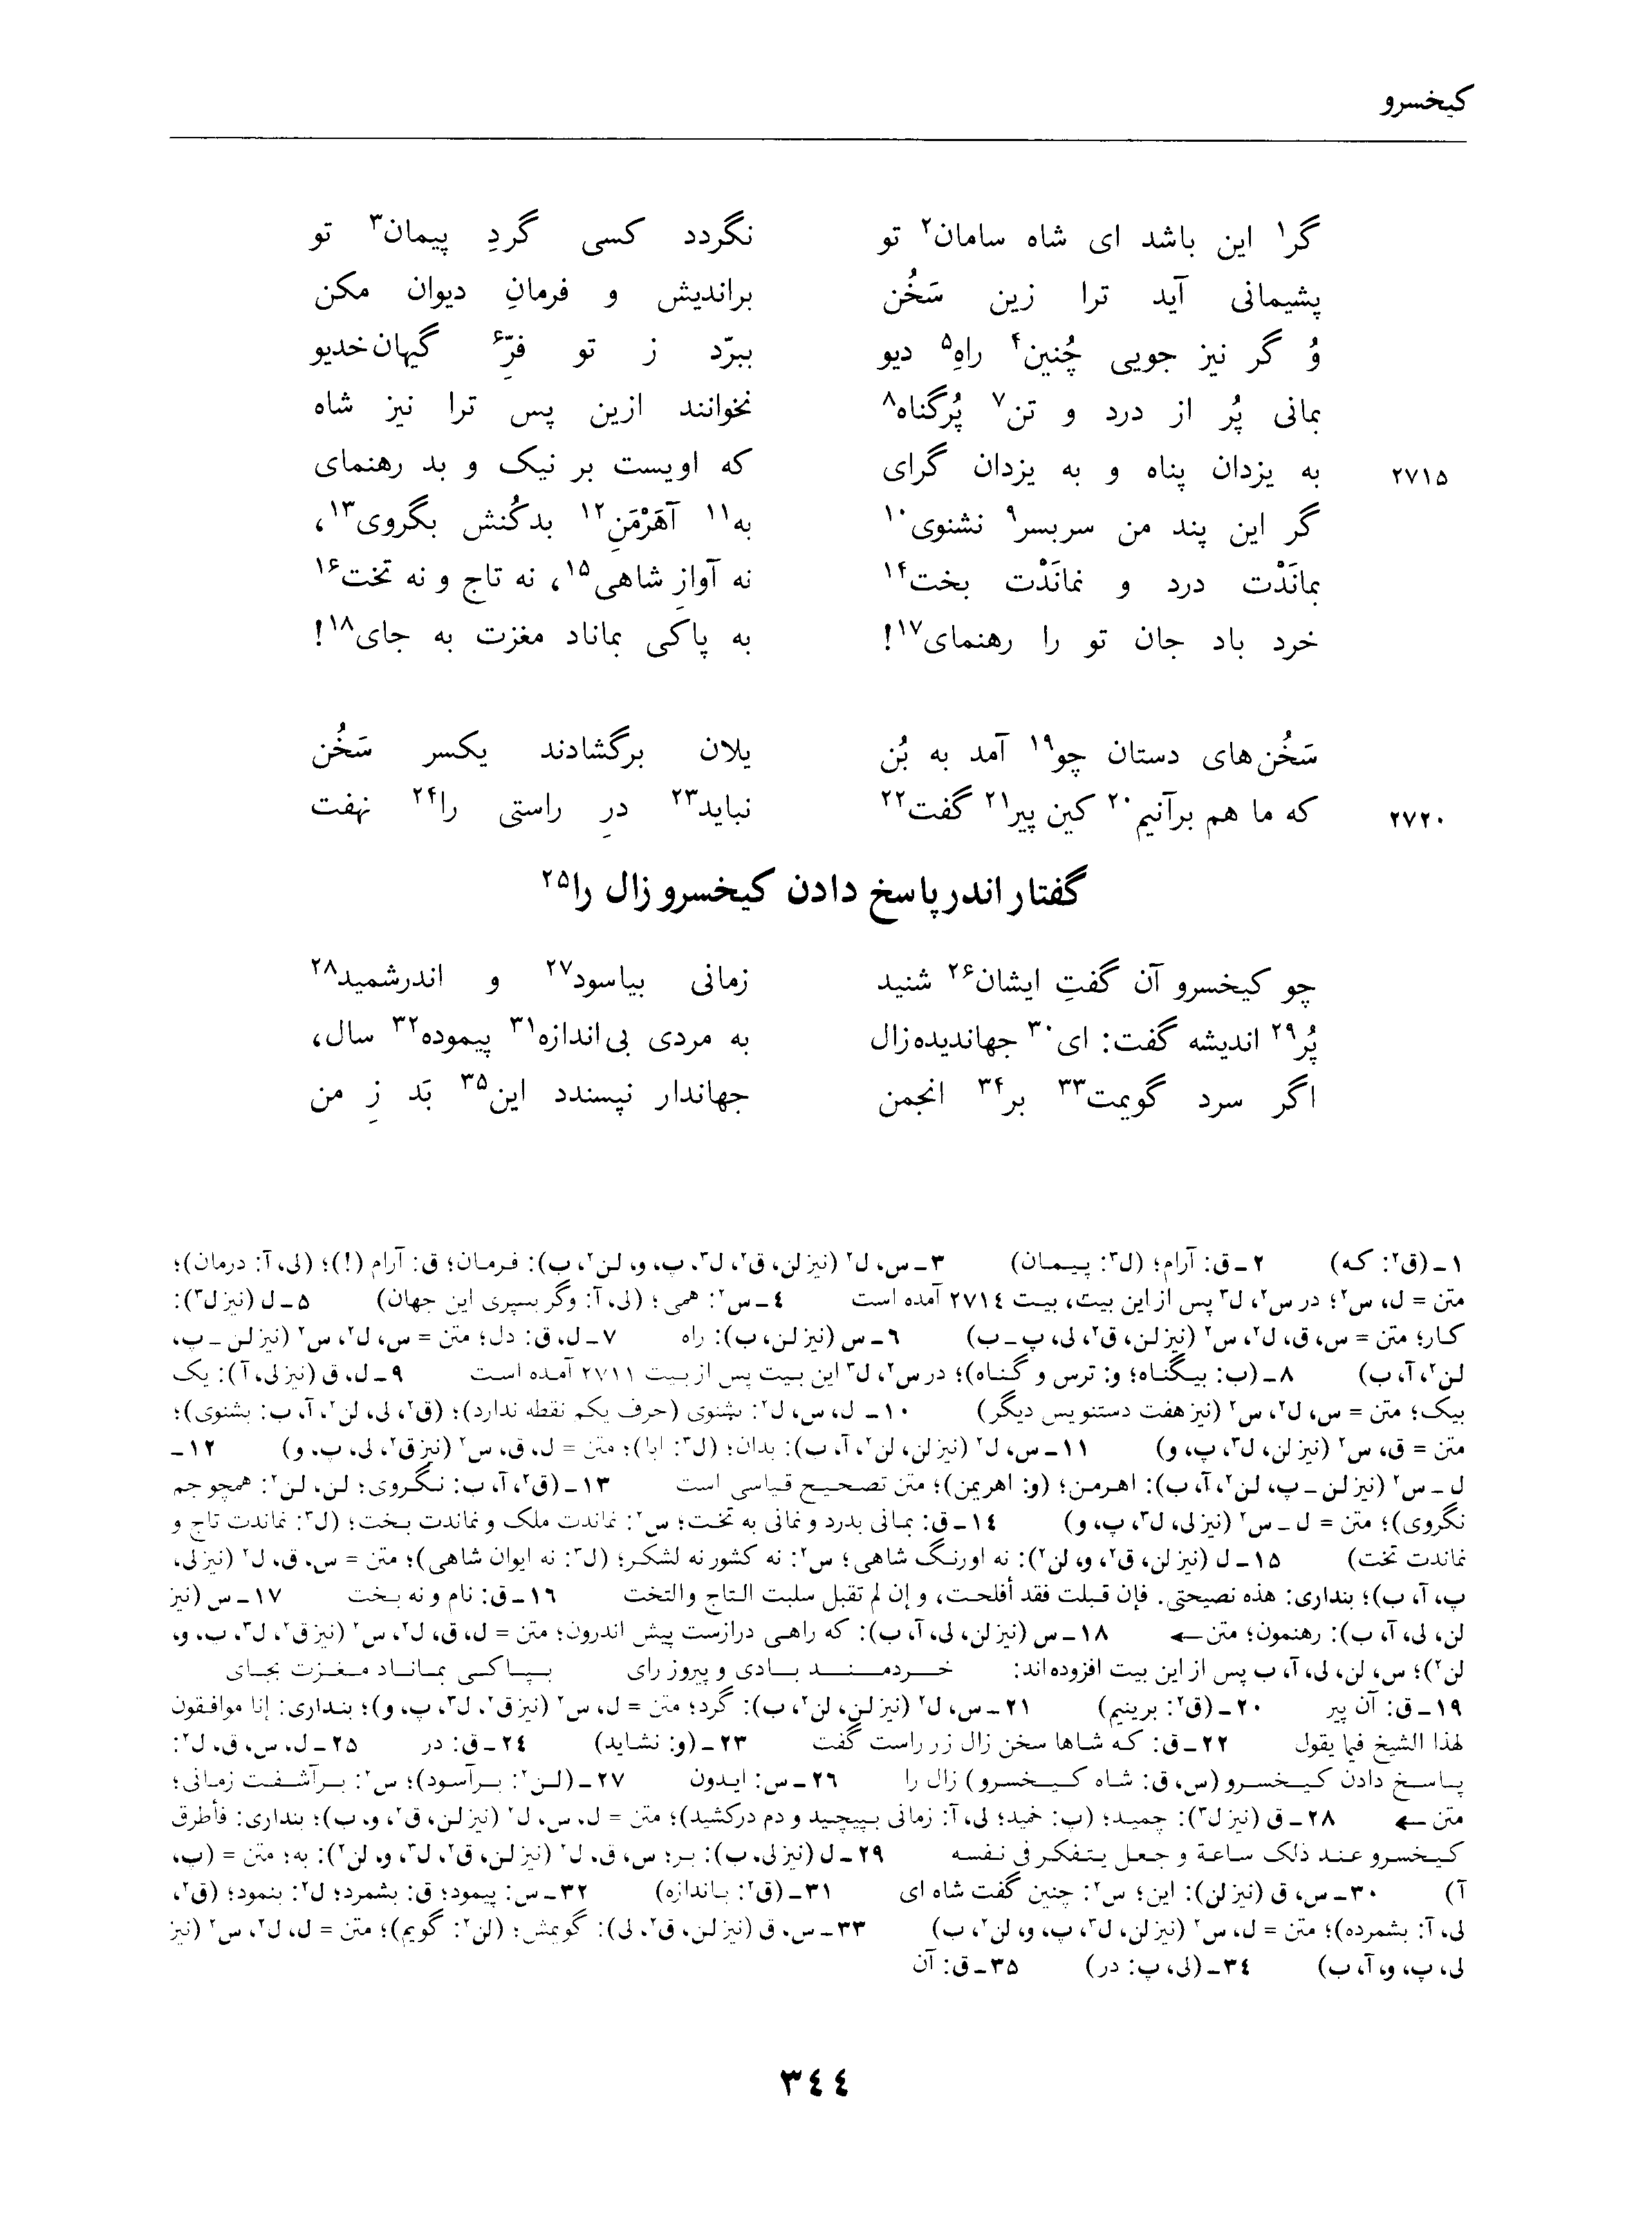 کیخسرو
گر۱ این باشد ای شاه سامان۲ تو نگردد کسی گردِ پیمان۳ تو
پشیمانی آید ترا زین سَخُن براندیش و فرمانِ دیوان مکن
وُ گر نیز جویی چُنین۴ راهِ۵ دیو ببرّد ز تو فرِّ۶ گیهان‌خدیو
بمانی پُر از درد و تن۷ پُرگناه۸ نخوانند ازین پس ترا نیز شاه
۲۷۱۵ به یزدان پناه و به یزدان گرای که اویست بر نیک و بد رهنمای
گر این پند من سربسر۹ نشنوی۱۰ به۱۱ آهَرْمَنِ۱۲ بدکُنش بگروی۱۳،
بمانَدْت درد و نمانَدْت بخت۱۴ نه آوازِ شاهی۱۵، نه تاج و نه تخت۱۶
خرد باد جان تو را رهنمای۱۷! به پاکی بماناد مغزت به جای۱۸!
سَخُن‌های دستان چو۱۹ آمد به بُن یلان برگشادند یکسر سَخُن
۲۷۲۰ که ما هم برآنیم۲۰ کین پیر۲۱ گفت۲۲ نباید۲۳ درِ راستی را۲۴ نهفت
گفتار اندر پاسخ دادن کیخسرو زال را۲۵
چو کیخسرو آن گفتِ ایشان۲۶ شنید زمانی بیاسود۲۷ و اندرشمید۲۸
پُر۲۹ اندیشه گفت: ای۳۰ جهاندیده زال به مردی بی‌اندازه۳۱ پیموده۳۲ سال،
اگر سرد گویمت۳۳ بر۳۴ انجمن جهاندار نپسندد این۳۵ بَد زِ من
۱ـ (ق۲: که) ۲ـ ق: آرام؛ (ل۳: پیمان) ۳ـ س، ل۲ (نیز لن، ق۲، ل۳، پ، و، لن۲، ب): فرمان؛ ق: آرام (!)؛ (لی، آ: درمان)؛
متن = ل، س۲؛ در س۲، ل۳ پس از این بیت، بیت ۲۷۱٤ آمده است ٤ـ س۲: همی؛ (لی، آ: وگر بسپری این جهان) ۵ـ ل (نیز ل۳):
کار؛ متن = س، ق، ل۲، س۲ (نیز لن، ق۲، لی، پ ـ ب) ٦ـ س (نیز لن، ب): راه ۷ـ ل، ق: دل؛ متن = س، ل۲، س۲ (نیز لن ـ پ،
لن۲، آ، ب) ۸ـ (ب: بیگناه؛ و: ترس و گناه)؛ در س۲، ل۳ این بیت پس از بیت ۲۷۱۱ آمده است ۹ـ ل، ق (نیز لی، آ): یک
بیک؛ متن = س، ل۲، س۲ (نیز هفت دستنویس دیگر) ۱۰ـ ل، س، ل۲: ںشنوی (حرف یکم نقطه ندارد)؛ (ق۲، لی، لن۲، آ، ب: بشنوی)؛
متن = ق، س۲ (نیز لن، ل۳، پ، و) ۱۱ـ س، ل۲ (نیز لن، لن۲، آ، ب): بدان؛ (ل۳: ابا)؛ متن = ل، ق، س۲ (نیز ق۲، لی، پ، و) ۱۲ـ
ل ـ س۲ (نیز لن ـ پ، لن۲، آ، ب): اهرمن؛ (و: اهریمن)؛ متن تصحیح قیاسی است ۱۳ـ (ق۲، آ، ب: نگروی؛ لن، لن۲: همچو جم
نگروی)؛ متن = ل ـ س۲ (نیز لی، ل۳، پ، و) ۱٤ـ ق: بمانی بدرد و نمانی به تخت؛ س۲: نماندت ملک و نماندت بخت؛ (ل۳: نماندت تاج و
نماندت تخت) ۱۵ـ ل (نیز لن، ق۲، و، لن۲): نه اورنگ شاهی؛ س۲: نه کشور نه لشکر؛ (ل۳: نه ایوان شاهی)؛ متن = س، ق، ل۲ (نیز لی،
پ، آ، ب)؛ بنداری: هذه نصیحتی. فإن قبلت فقد أفلحت، و إن لم تقبل سلبت التاج والتخت ۱٦ـ ق: نام و نه بخت ۱۷ـ س (نیز
لن، لی، آ، ب): رهنمون؛ متن← ۱۸ـ س (نیز لن، لی، آ، ب): که راهی درازست پیش اندرون؛ متن = ل، ق، ل۲، س۲ (نیز ق۲، ل۳، پ، و،
لن۲)؛ س، لن، لی، آ، ب پس از این بیت افزوده‌اند: خردمند بادی و پیروز رای بپاکی بماناد مغزت بجای
۱۹ـ ق: آن پیر ۲۰ـ (ق۲: برینیم) ۲۱ـ س، ل۲ (نیز لن، لن۲، ب): گرد؛ متن = ل، س۲ (نیز ق۲، ل۳، پ، و)؛ بنداری: إنا موافقون
لهذا الشیخ فیما یقول ۲۲ـ ق: که شاها سخن زال زر راست گفت ۲۳ـ (و: نشاید) ۲٤ـ ق: در ۲۵ـ ل، س، ق، ل۲:
پاسخ دادن کیخسرو (س، ق: شاه کیخسرو) زال را ۲٦ـ س: ایدون ۲۷ـ (لن۲: برآسود)؛ س۲: برآشفت زمانی؛
متن← ۲۸ـ ق (نیز ل۳): چمید؛ (پ: خمید؛ لی، آ: زمانی بپیچید و دم درکشید)؛ متن = ل، س، ل۲ (نیز لن، ق۲، و، ب)؛ بنداری: فأطرق
کیخسرو عند ذلک ساعة و جعل یتفکر فی نفسه ۲۹ـ ل (نیز لی، ب): بر؛ س، ق، ل۲ (نیز لن، ق۲، ل۳، و، لن۲): به؛ متن = (پ،
آ) ۳۰ـ س، ق (نیز لن): این؛ س۲: چنین گفت شاه ای ۳۱ـ (ق۲: باندازه) ۳۲ـ س: پیمود؛ ق: بشمرد؛ ل۲: بنمود؛ (ق۲،
لی، آ: بشمرده)؛ متن = ل، س۲ (نیز لن، ل۳، پ، و، لن۲، ب) ۳۳ـ س، ق (نیز لن، ق۲، لی): گویمش؛ (لن۲: گویم)؛ متن = ل، ل۲، س۲ (نیز
لی، پ، و، آ، ب) ۳٤ـ (لی، پ: در) ۳۵ـ ق: آن
۳٤٤